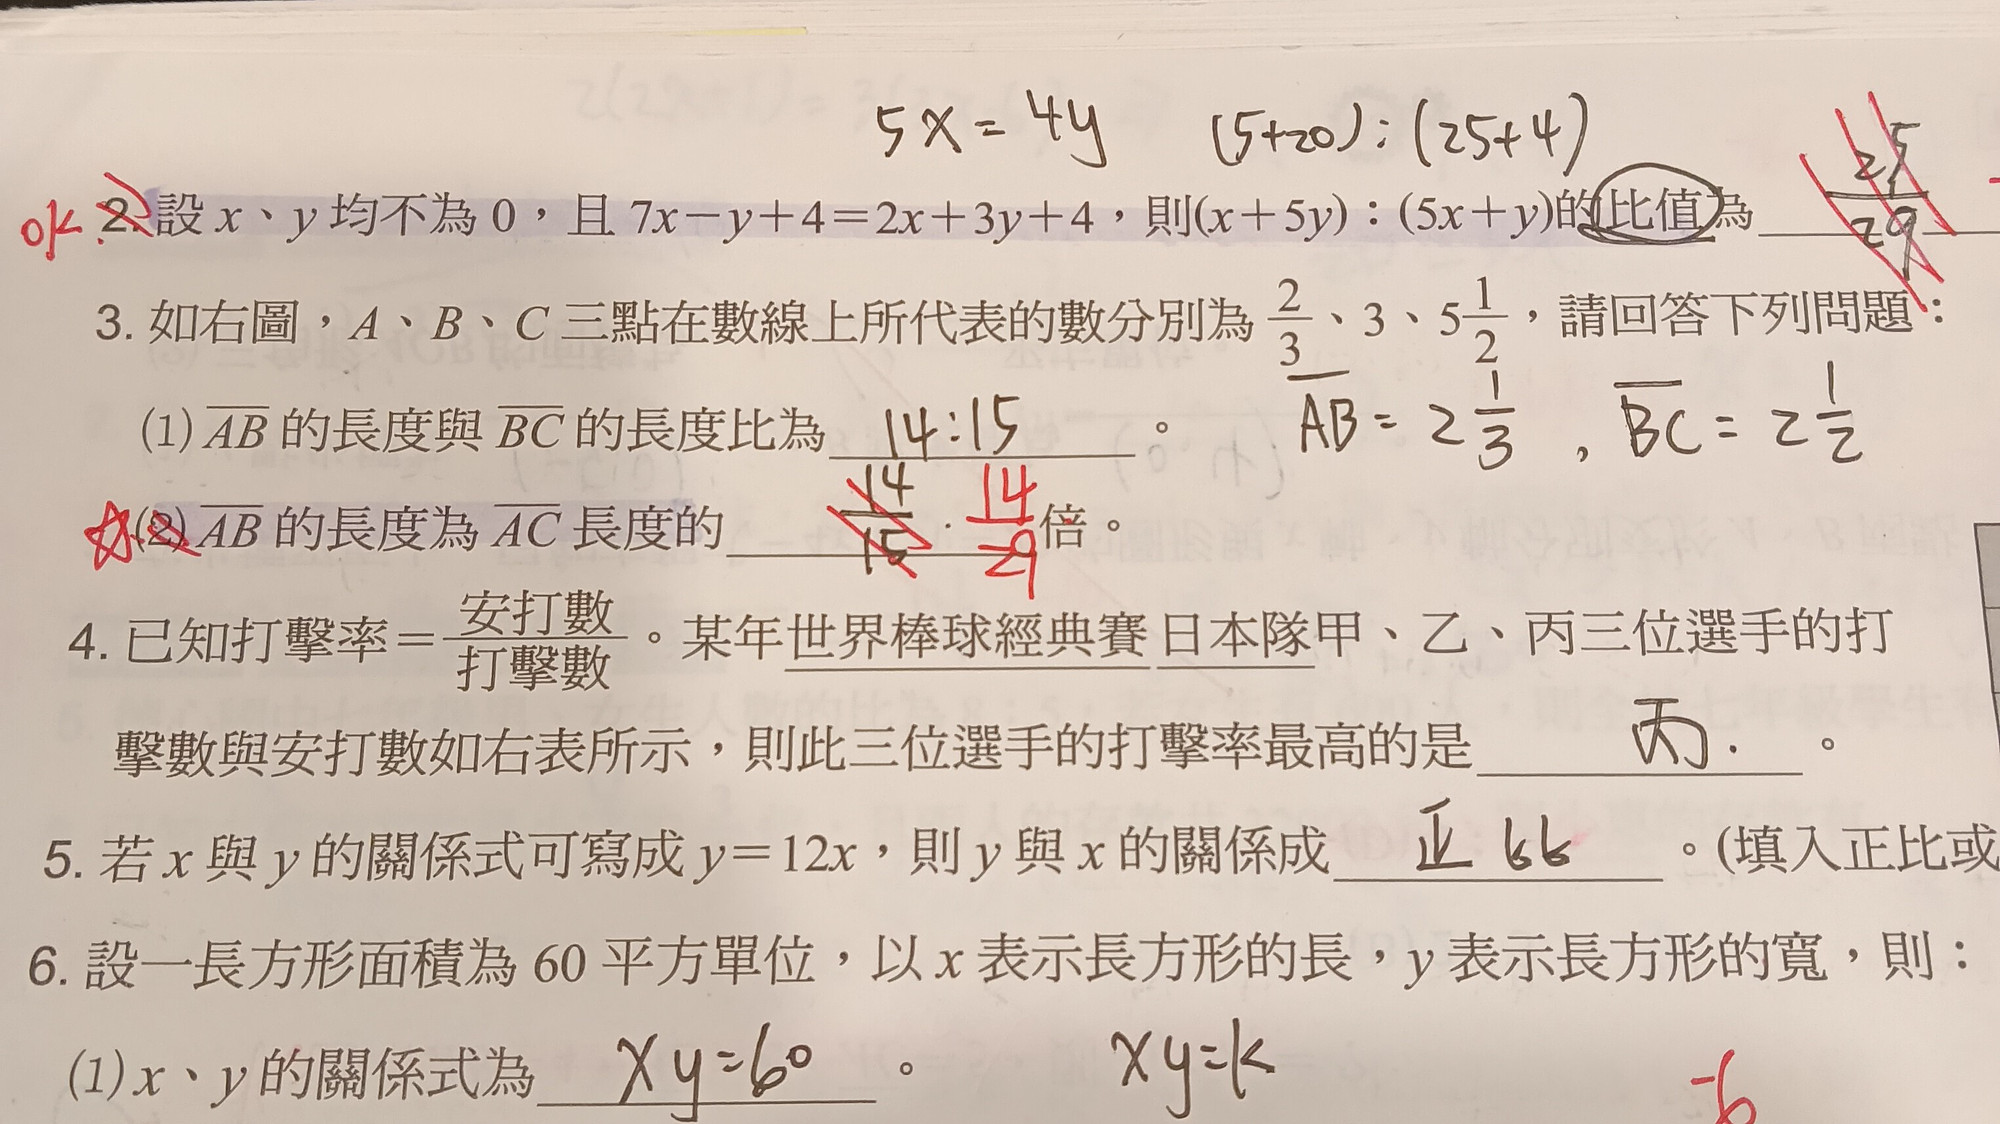 5x=4y (5+20):(25+4)
ok 2. 設 x、y 均不為 0，且 7x－y＋4＝2x＋3y＋4，則(x＋5y)：(5x＋y)的比值為 25/29
3. 如右圖，A、B、C 三點在數線上所代表的數分別為 2/3、3、5 1/2，請回答下列問題：
(1) AB 的長度與 BC 的長度比為 14:15 。 AB = 2 1/3 , BC = 2 1/2
☆(2) AB 的長度為 AC 長度的 14/15 . 14/29 倍。
4. 已知打擊率＝安打數/打擊數。某年世界棒球經典賽日本隊甲、乙、丙三位選手的打
擊數與安打數如右表所示，則此三位選手的打擊率最高的是 丙. 。
5. 若 x 與 y 的關係式可寫成 y＝12x，則 y 與 x 的關係成 正比 。(填入正比或
6. 設一長方形面積為 60 平方單位，以 x 表示長方形的長，y 表示長方形的寬，則：
(1) x、y 的關係式為 xy=60 。 xy=k
-6